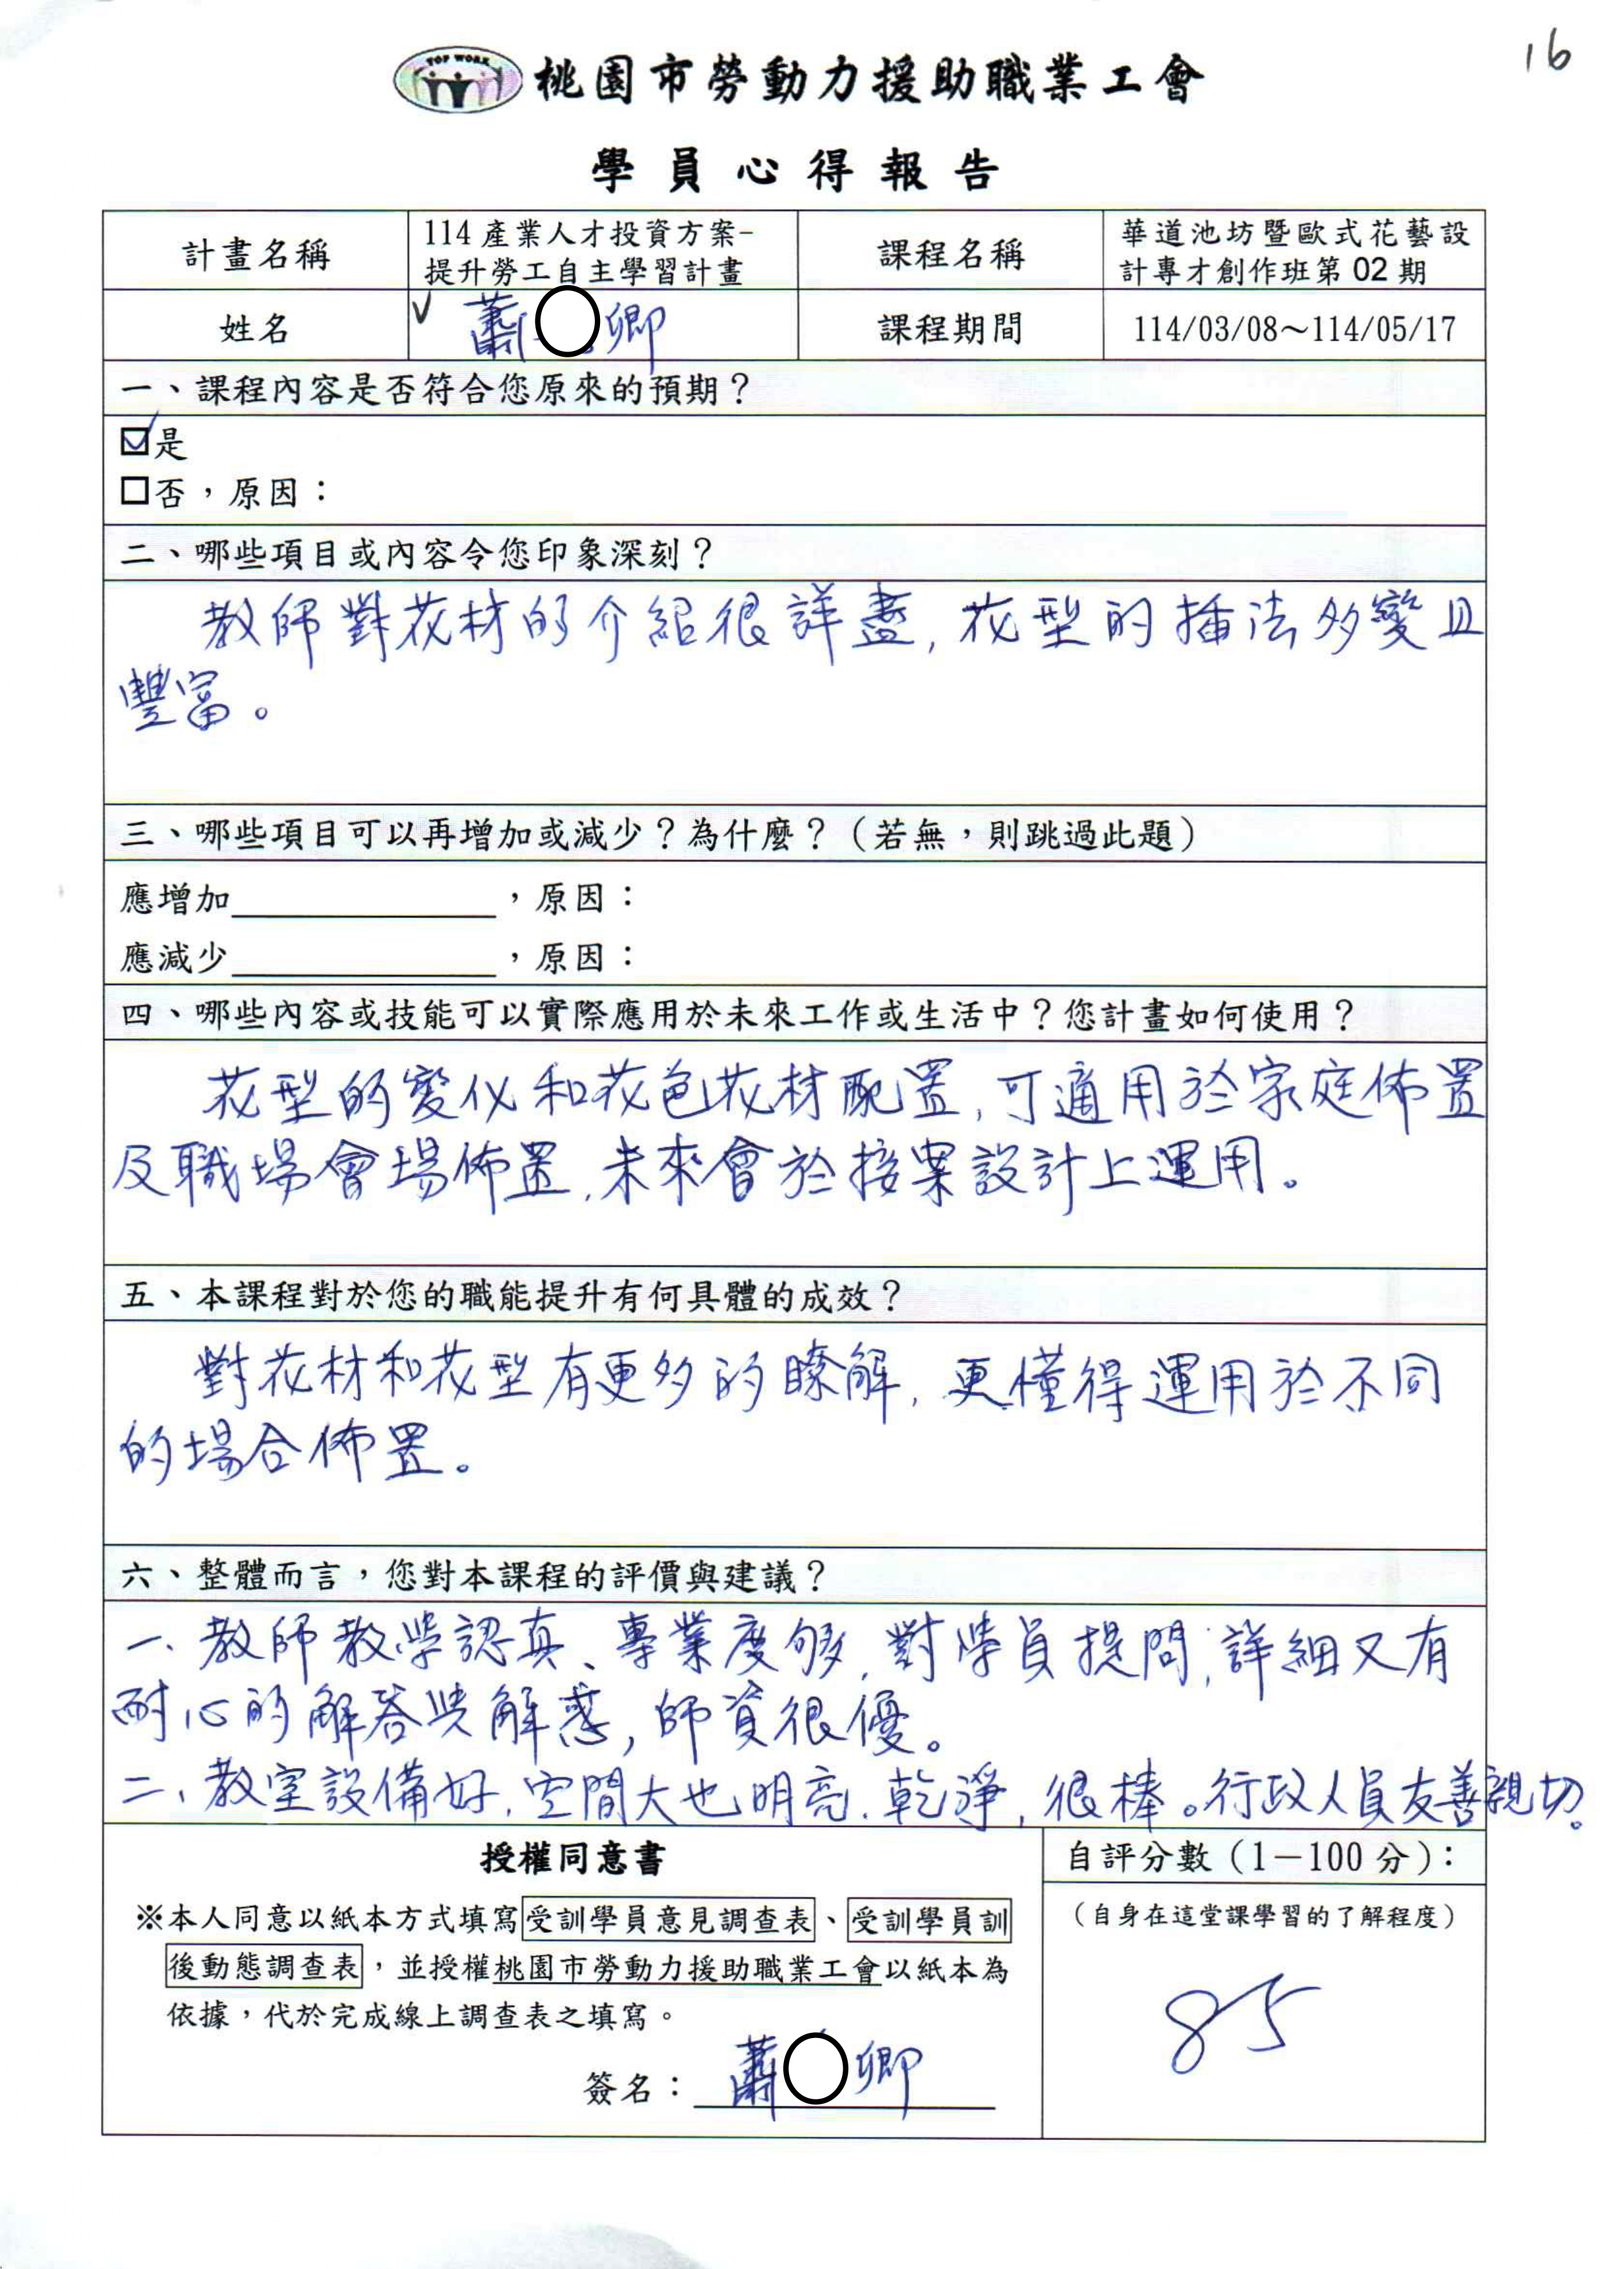 16
TOP WORK
桃園市勞動力援助職業工會
學員心得報告
計畫名稱
114產業人才投資方案-
提升勞工自主學習計畫
課程名稱
華道池坊暨歐式花藝設
計專才創作班第02期
姓名
蕭 卿
課程期間
114/03/08～114/05/17
一、課程內容是否符合您原來的預期？
☑是
□否，原因：
二、哪些項目或內容令您印象深刻？
教師對花材的介紹很詳盡,花型的插法多變且
豐富。
三、哪些項目可以再增加或減少？為什麼？（若無，則跳過此題）
應增加＿＿＿＿＿＿＿，原因：
應減少＿＿＿＿＿＿＿，原因：
四、哪些內容或技能可以實際應用於未來工作或生活中？您計畫如何使用？
花型的變化和花色花材配置,可適用於家庭佈置
及職場會場佈置,未來會於接案設計上運用。
五、本課程對於您的職能提升有何具體的成效？
對花材和花型有更多的瞭解,更懂得運用於不同
的場合佈置。
六、整體而言，您對本課程的評價與建議？
一、教師教學認真、專業度夠,對學員提問,詳細又有
耐心的解答與解惑,師資很優。
二、教室設備好,空間大也明亮、乾淨,很棒。行政人員友善親切。
授權同意書
※本人同意以紙本方式填寫受訓學員意見調查表、受訓學員訓
後動態調查表，並授權桃園市勞動力援助職業工會以紙本為
依據，代於完成線上調查表之填寫。
簽名：蕭 卿
自評分數（1－100分）：
（自身在這堂課學習的了解程度）
85